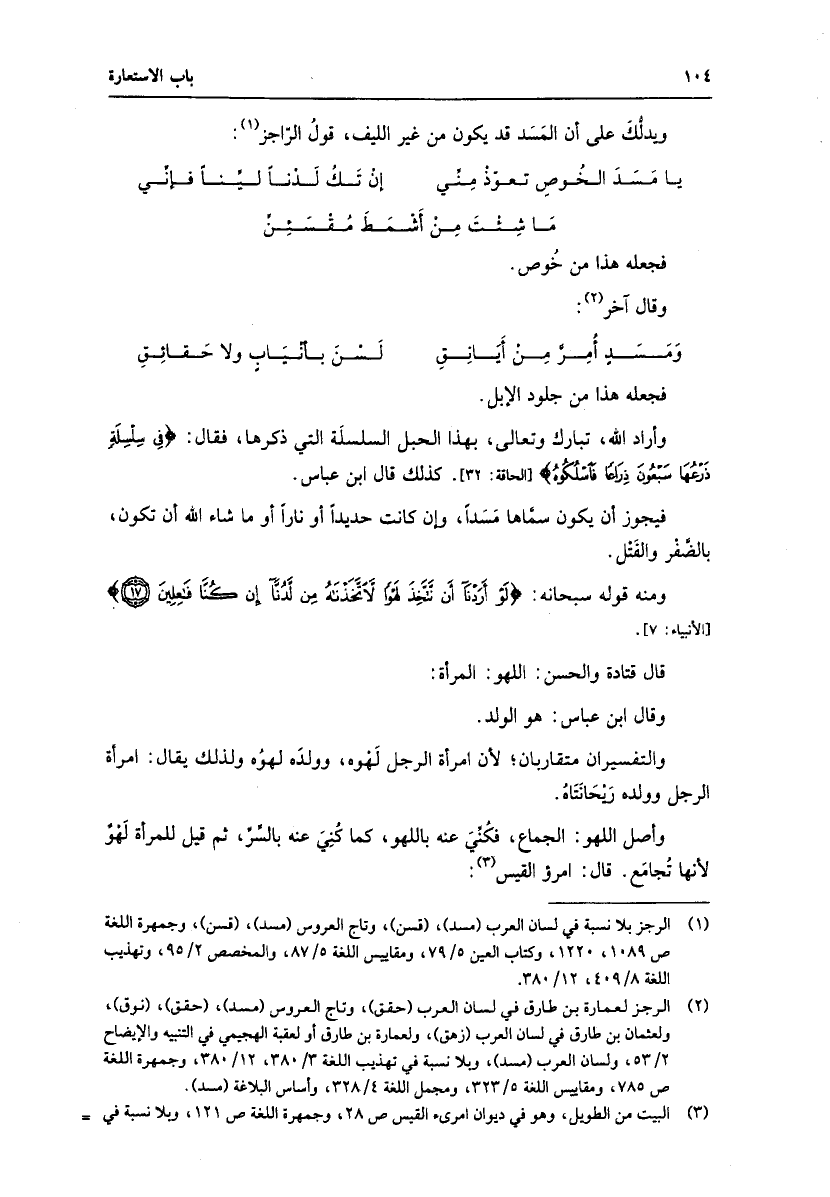 ١٠٤ باب الاستعارة
ويدلُّكَ على أن المَسَد قد يكون من غير الليف، قولُ الرّاجز(١):
يا مَسَدَ الخُوصِ تعوّذْ مِنِّي إنْ تَكُ لَدْناً ليِّناً فإنِّي
مَا شِئْتَ مِنْ أَشْمَطَ مُقْسَئِنِّ
فجعله هذا من خُوص.
وقال آخر(٢):
وَمَسَدٍ أُمِرَّ مِنْ أَيَانِقِ لَسْنَ بأنْيَابٍ ولا حَقائِقِ
فجعله هذا من جلود الإبل.
وأراد الله، تبارك وتعالى، بهذا الحبل السلسلَة التي ذكرها، فقال: ﴿فِي سِلْسِلَةٍ
ذَرْعُهَا سَبْعُونَ ذِرَاعًا فَاسْلُكُوهُ﴾ [الحاقة: ٣٢]. كذلك قال ابن عباس.
فيجوز أن يكون سمَّاها مَسَداً، وإن كانت حديداً أو ناراً أو ما شاء الله أن تكون،
بالضَّفْر والفَتْل.
ومنه قوله سبحانه: ﴿لَوْ أَرَدْنَآ أَن نَّتَّخِذَ لَهْوًا لَّاتَّخَذْنَاهُ مِن لَّدُنَّآ إِن كُنَّا فَاعِلِينَ ١٧﴾
[الأنبياء: ٧].
قال قتادة والحسن: اللهو: المرأة:
وقال ابن عباس: هو الولد.
والتفسيران متقاربان؛ لأن امرأة الرجل لَهْوه، وولدَه لهوُه ولذلك يقال: امرأة
الرجل وولده رَيْحَانَتَاهُ.
وأصل اللهو: الجماع، فكُنِّيَ عنه باللهو، كما كُنِيَ عنه بالسِّرّ، ثم قيل للمرأة لَهْوٌ
لأنها تُجامَع. قال: امرؤ القيس(٣):
(١) الرجز بلا نسبة في لسان العرب (مسد)، (قسن)، وتاج العروس (مسد)، (قسن)، وجمهرة اللغة
ص ١٠٨٩، ١٢٢٠، وكتاب العين ٥/ ٧٩، ومقاييس اللغة ٥/ ٨٧، والمخصص ٢/ ٩٥، وتهذيب
اللغة ٨/ ٤٠٩، ١٢/ ٣٨٠.
(٢) الرجز لعمارة بن طارق في لسان العرب (حقق)، وتاج العروس (مسد)، (حقق)، (نوق)،
ولعثمان بن طارق في لسان العرب (زهق)، ولعمارة بن طارق أو لعقبة الهجيمي في التنبيه والإيضاح
٢/ ٥٣، ولسان العرب (مسد)، وبلا نسبة في تهذيب اللغة ٣/ ٣٨٠، ١٢/ ٣٨٠، وجمهرة اللغة
ص ٧٨٥، ومقاييس اللغة ٥/ ٣٢٣، ومجمل اللغة ٤/ ٣٢٨، وأساس البلاغة (مسد).
(٣) البيت من الطويل، وهو في ديوان امرىء القيس ص ٢٨، وجمهرة اللغة ص ١٢١، وبلا نسبة في =